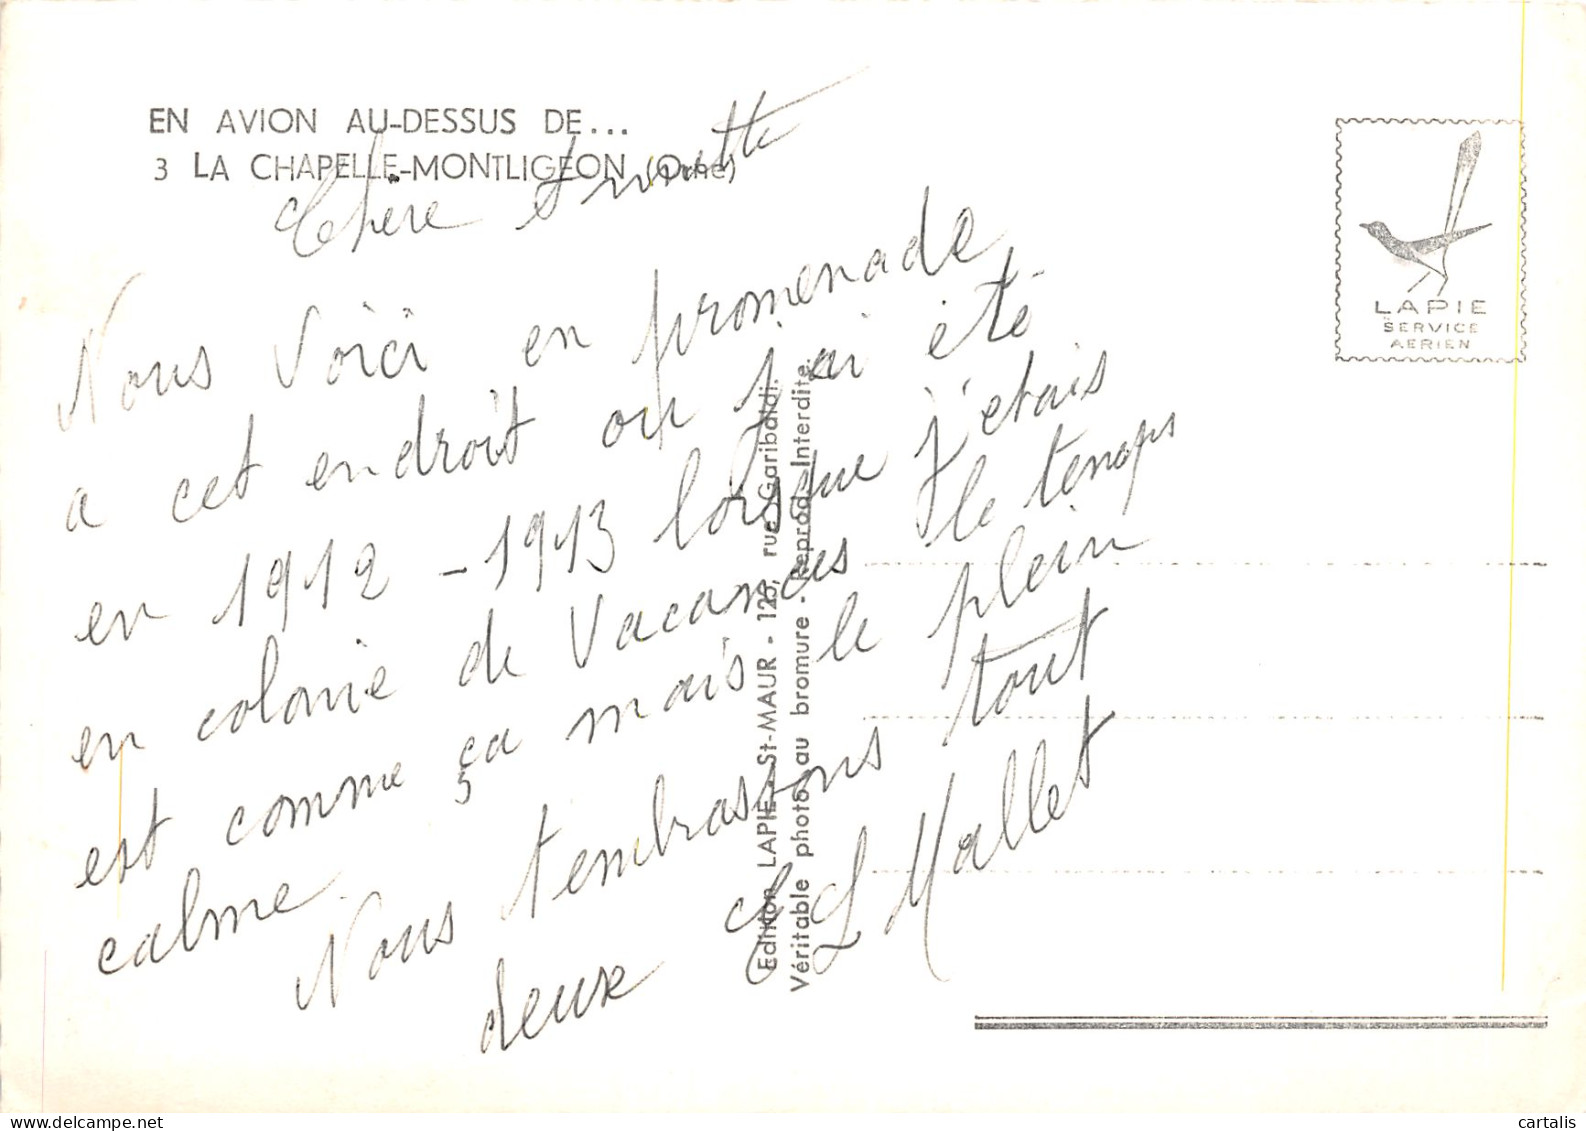 EN AVION AU-DESSUS DE...
3 LA CHAPELLE-MONTLIGEON (Orne)
LAPIE
SERVICE
AERIEN
Edition LAPIE - St-MAUR - 123, rue Garibaldi.
Véritable photo au bromure - Reprod. Interdite.
Chère
Nous voici en promenade
a cet endroit ou j'ai été
en 1912 - 1913 lorsque j'etais
en colonie de Vacances le temps
est comme ça mais le plein
calme.
Nous t'embrassons tout
deux L Mallet
cartalis
delcampe.net